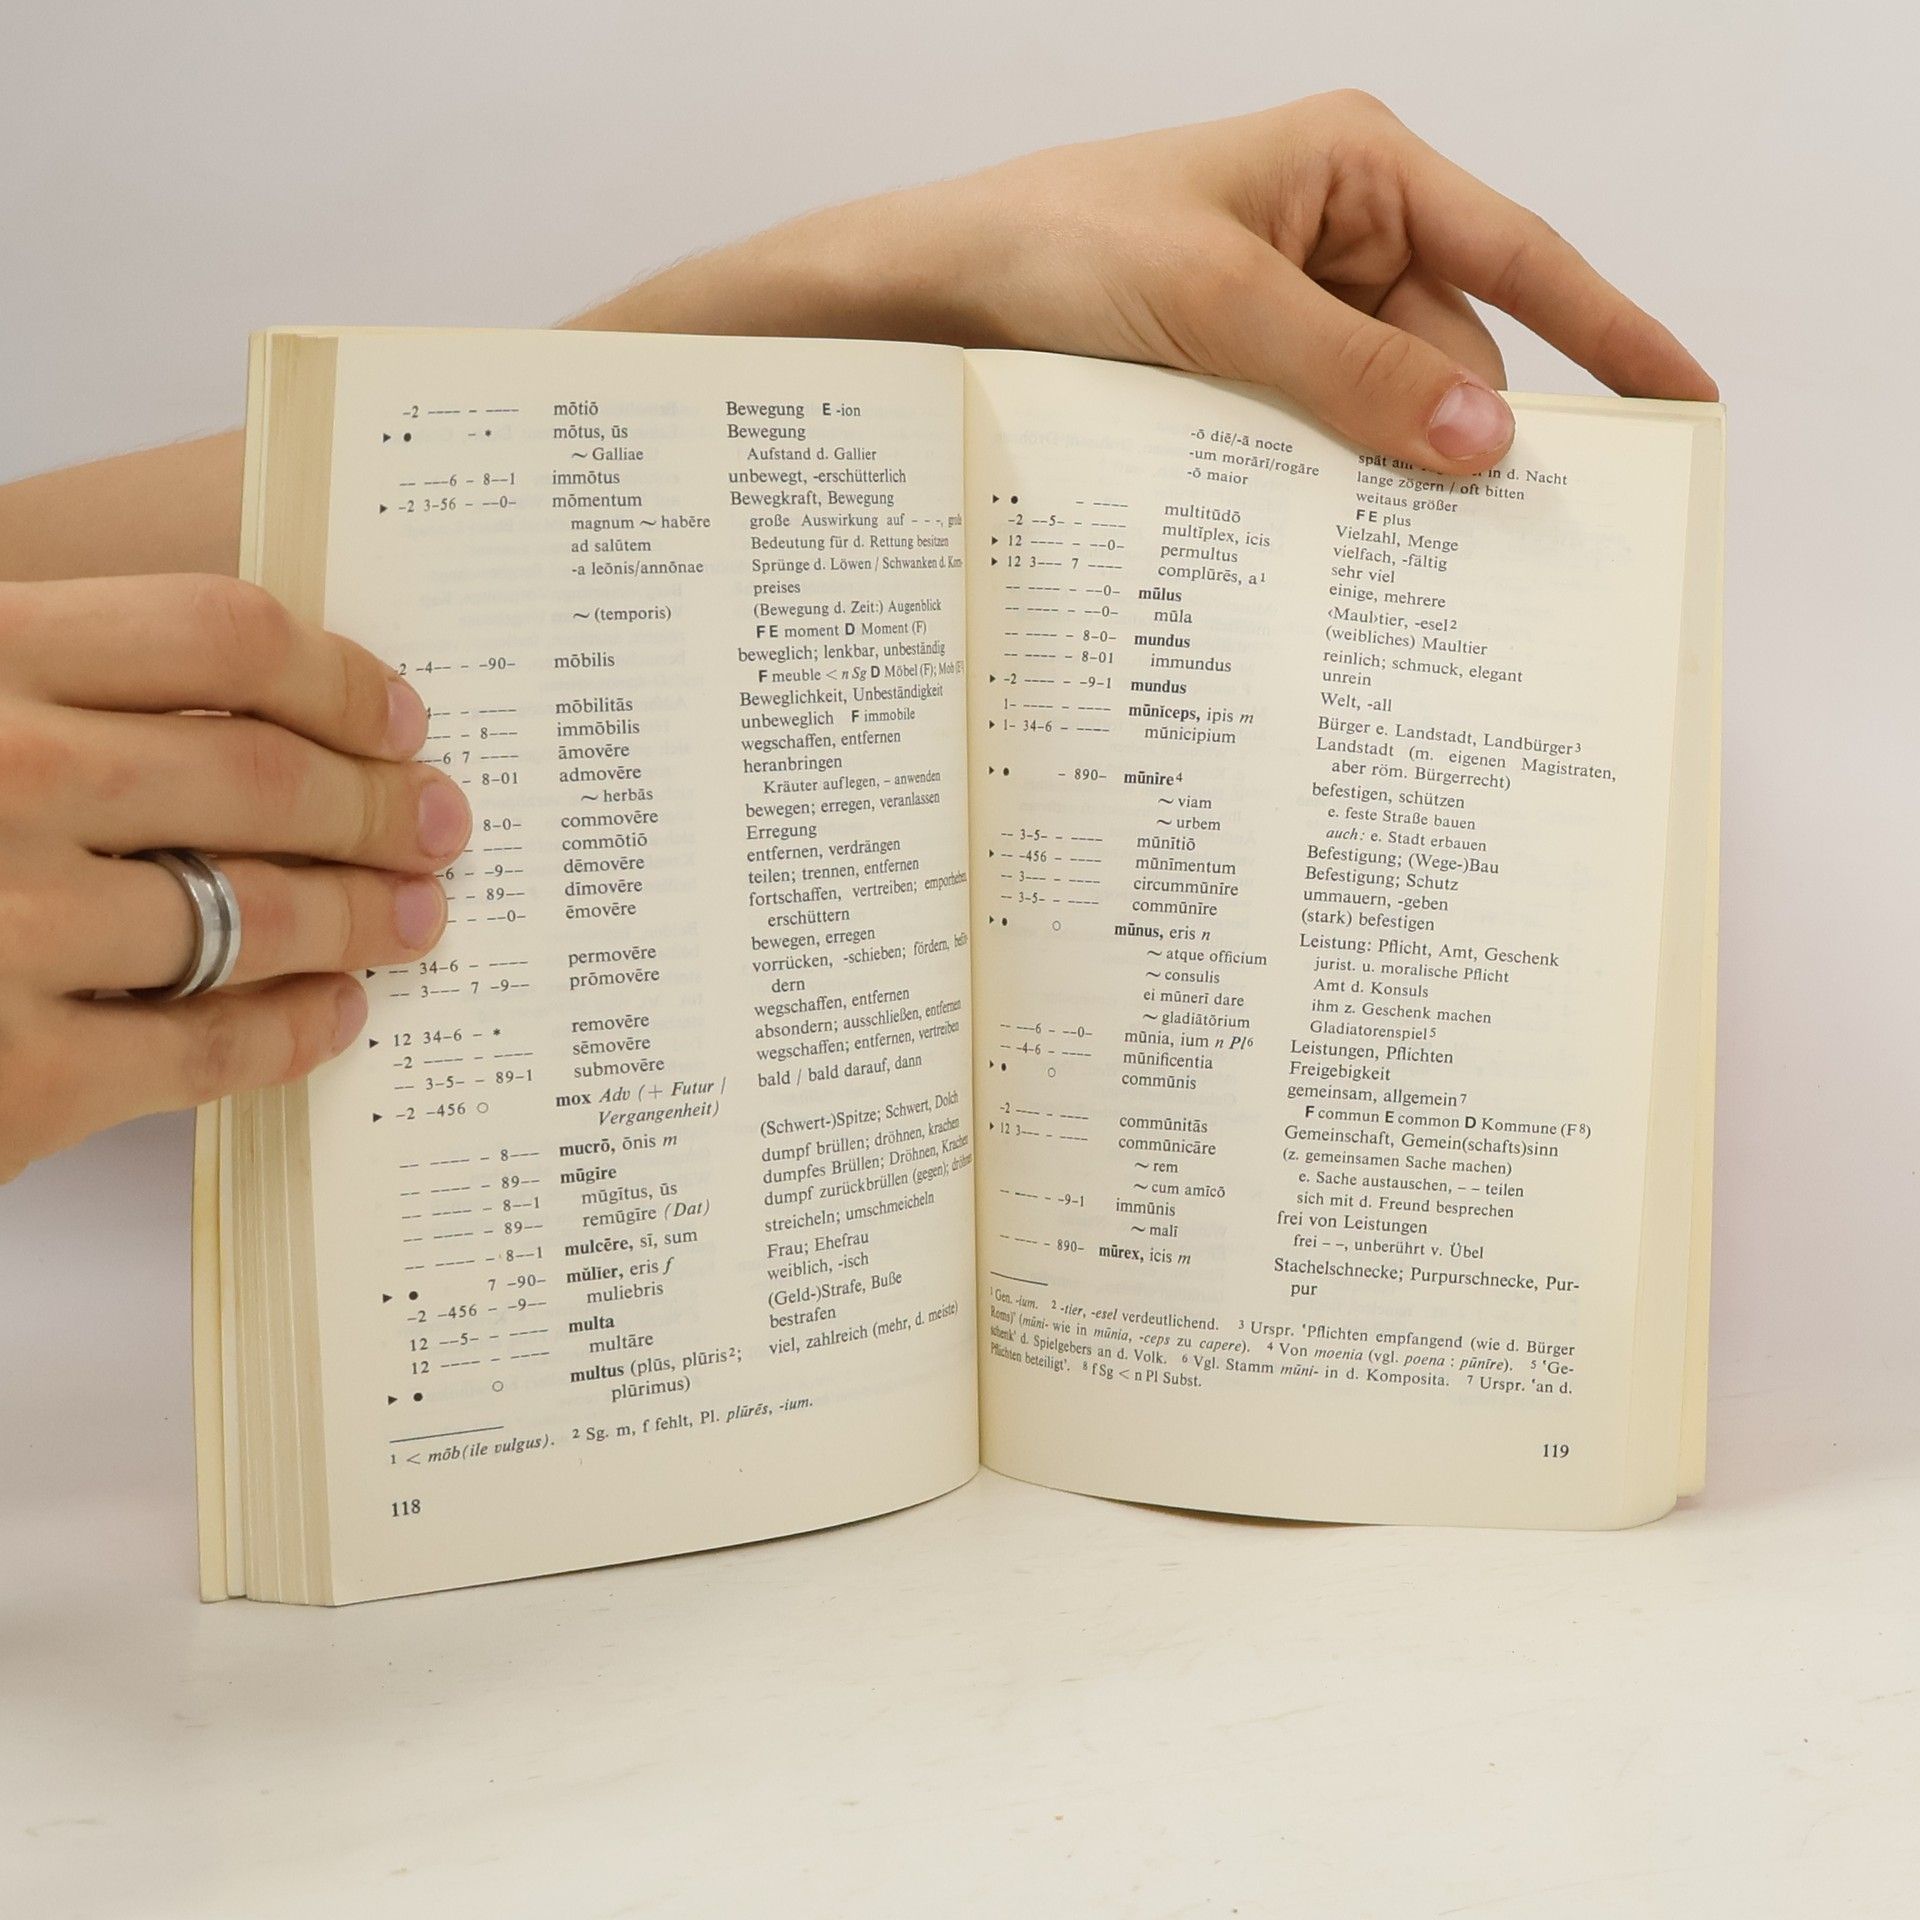 -2 ---- - ---- mōtiō Bewegung E -ion
▸ ● - * mōtus, ūs Bewegung
~ Galliae Aufstand d. Gallier
-- ---6 - 8--1 immōtus unbewegt, -erschütterlich
▸ -2 3-56 - --0- mōmentum Bewegkraft, Bewegung
magnum ~ habēre große Auswirkung auf - - -,
ad salūtem Bedeutung für d. Rettung besitzen
-a leōnis/annōnae Sprünge d. Löwen / Schwanken d. Korn-
preises
~ (temporis) (Bewegung d. Zeit:) Augenblick
F E moment D Moment (F)
-2 -4-- - -90- mōbilis beweglich; lenkbar, unbeständig
F meuble < n Sg D Möbel (F); Mob (E¹)
4-- - ---- mōbilitās Beweglichkeit, Unbeständigkeit
--- - 8--- immōbilis unbeweglich F immobile
--6 7 ---- āmovēre wegschaffen, entfernen
- 8-01 admovēre heranbringen
~ herbās Kräuter auflegen, – anwenden
8-0- commovēre bewegen; erregen, veranlassen
---- commōtiō Erregung
-6 - -9-- dēmovēre entfernen, verdrängen
- 89-- dīmovēre teilen; trennen, entfernen
- - --0- ēmovēre fortschaffen, vertreiben; emporheben
erschüttern
▸ -- 34-6 - ---- permovēre bewegen, erregen
-- 3--- 7 -9-- prōmovēre vorrücken, -schieben; fördern, beför-
dern
▸ 12 34-6 - * removēre wegschaffen, entfernen
-2 ---- - ---- sēmovēre absondern; ausschließen, entfernen
-- 3-5- - 89-1 submovēre wegschaffen; entfernen, vertreiben
▸ -2 -456 ○ mox Adv (+ Futur / bald / bald darauf, dann
Vergangenheit)
-- ---- - 8--- mucrō, ōnis m (Schwert-)Spitze; Schwert, Dolch
-- ---- - 89-- mūgīre dumpf brüllen; dröhnen, krachen
-- ---- - 8--1 mūgītus, ūs dumpfes Brüllen; Dröhnen, Krachen
-- ---- - 89-- remūgīre (Dat) dumpf zurückbrüllen (gegen); dröhnen
-- ---- - 8--1 mulcēre, sī, sum streicheln; umschmeicheln
▸ ● 7 -90- mŭlĭer, eris f Frau; Ehefrau
-2 -456 - -9-- muliebris weiblich, -isch
12 --5- - ---- multa (Geld-)Strafe, Buße
12 ---- - ---- multāre bestrafen
▸ ● ○ multus (plūs, plūris²; viel, zahlreich (mehr, d. meiste)
plūrimus)
¹ < mōb(ile vulgus). ² Sg. m, f fehlt, Pl. plūrēs, -ium.
118
-ō diē/-ā nocte spät am in d. Nacht
-um morārī/rogāre lange zögern / oft bitten
-ō maior weitaus größer
F E plus
▸ ● - ---- multitūdō Vielzahl, Menge
-2 --5- - ---- multĭplex, icis vielfach, -fältig
▸ 12 ---- - --0- permultus sehr viel
▸ 12 3--- 7 ---- complūrēs, a¹ einige, mehrere
-- ---- - --0- mūlus ‹Maul›tier, -esel²
-- ---- - --0- mūla (weibliches) Maultier
-- ---- - 8-0- mundus reinlich; schmuck, elegant
-- ---- - 8-01 immundus unrein
▸ -2 ---- - -9-1 mundus Welt, -all
1- ---- - ---- mūnĭceps, ipis m Bürger e. Landstadt, Landbürger³
▸ 1- 34-6 - ---- mūnicipium Landstadt (m. eigenen Magistraten,
aber röm. Bürgerrecht)
▸ ● - 890- mūnīre⁴ befestigen, schützen
~ viam e. feste Straße bauen
~ urbem auch: e. Stadt erbauen
-- 3-5- - ---- mūnītiō Befestigung; (Wege-)Bau
▸ -- -456 - ---- mūnīmentum Befestigung; Schutz
-- 3--- - ---- circummūnīre ummauern, -geben
-- 3-5- - ---- commūnīre (stark) befestigen
▸ ● ○ mūnus, eris n Leistung: Pflicht, Amt, Geschenk
~ atque officium jurist. u. moralische Pflicht
~ consulis Amt d. Konsuls
ei mūnerī dare ihm z. Geschenk machen
~ gladiātōrium Gladiatorenspiel⁵
-- ---6 - --0- mūnia, ium n Pl⁶ Leistungen, Pflichten
-- -4-6 - ---- mūnificentia Freigebigkeit
▸ ● ○ commūnis gemeinsam, allgemein⁷
F commun E common D Kommune (F⁸)
-2 ---- - ---- commūnitās Gemeinschaft, Gemein(schafts)sinn
▸ 12 3--- - ---- commūnicāre (z. gemeinsamen Sache machen)
~ rem e. Sache austauschen, – – teilen
~ cum amīcō sich mit d. Freund besprechen
-- ---- - -9-1 immūnis frei von Leistungen
~ malī frei – –, unberührt v. Übel
-- ---- - 890- mūrex, icis m Stachelschnecke; Purpurschnecke, Pur-
pur
¹ Gen. -ium. ² -tier, -esel verdeutlichend. ³ Urspr. 'Pflichten empfangend (wie d. Bürger
Roms)' (mūni- wie in mūnia, -ceps zu capere). ⁴ Von moenia (vgl. poena : pūnīre). ⁵ 'Ge-
schenk' d. Spielgebers an d. Volk. ⁶ Vgl. Stamm mūni- in d. Komposita. ⁷ Urspr. 'an d.
Pflichten beteiligt'. ⁸ f Sg < n Pl Subst.
119